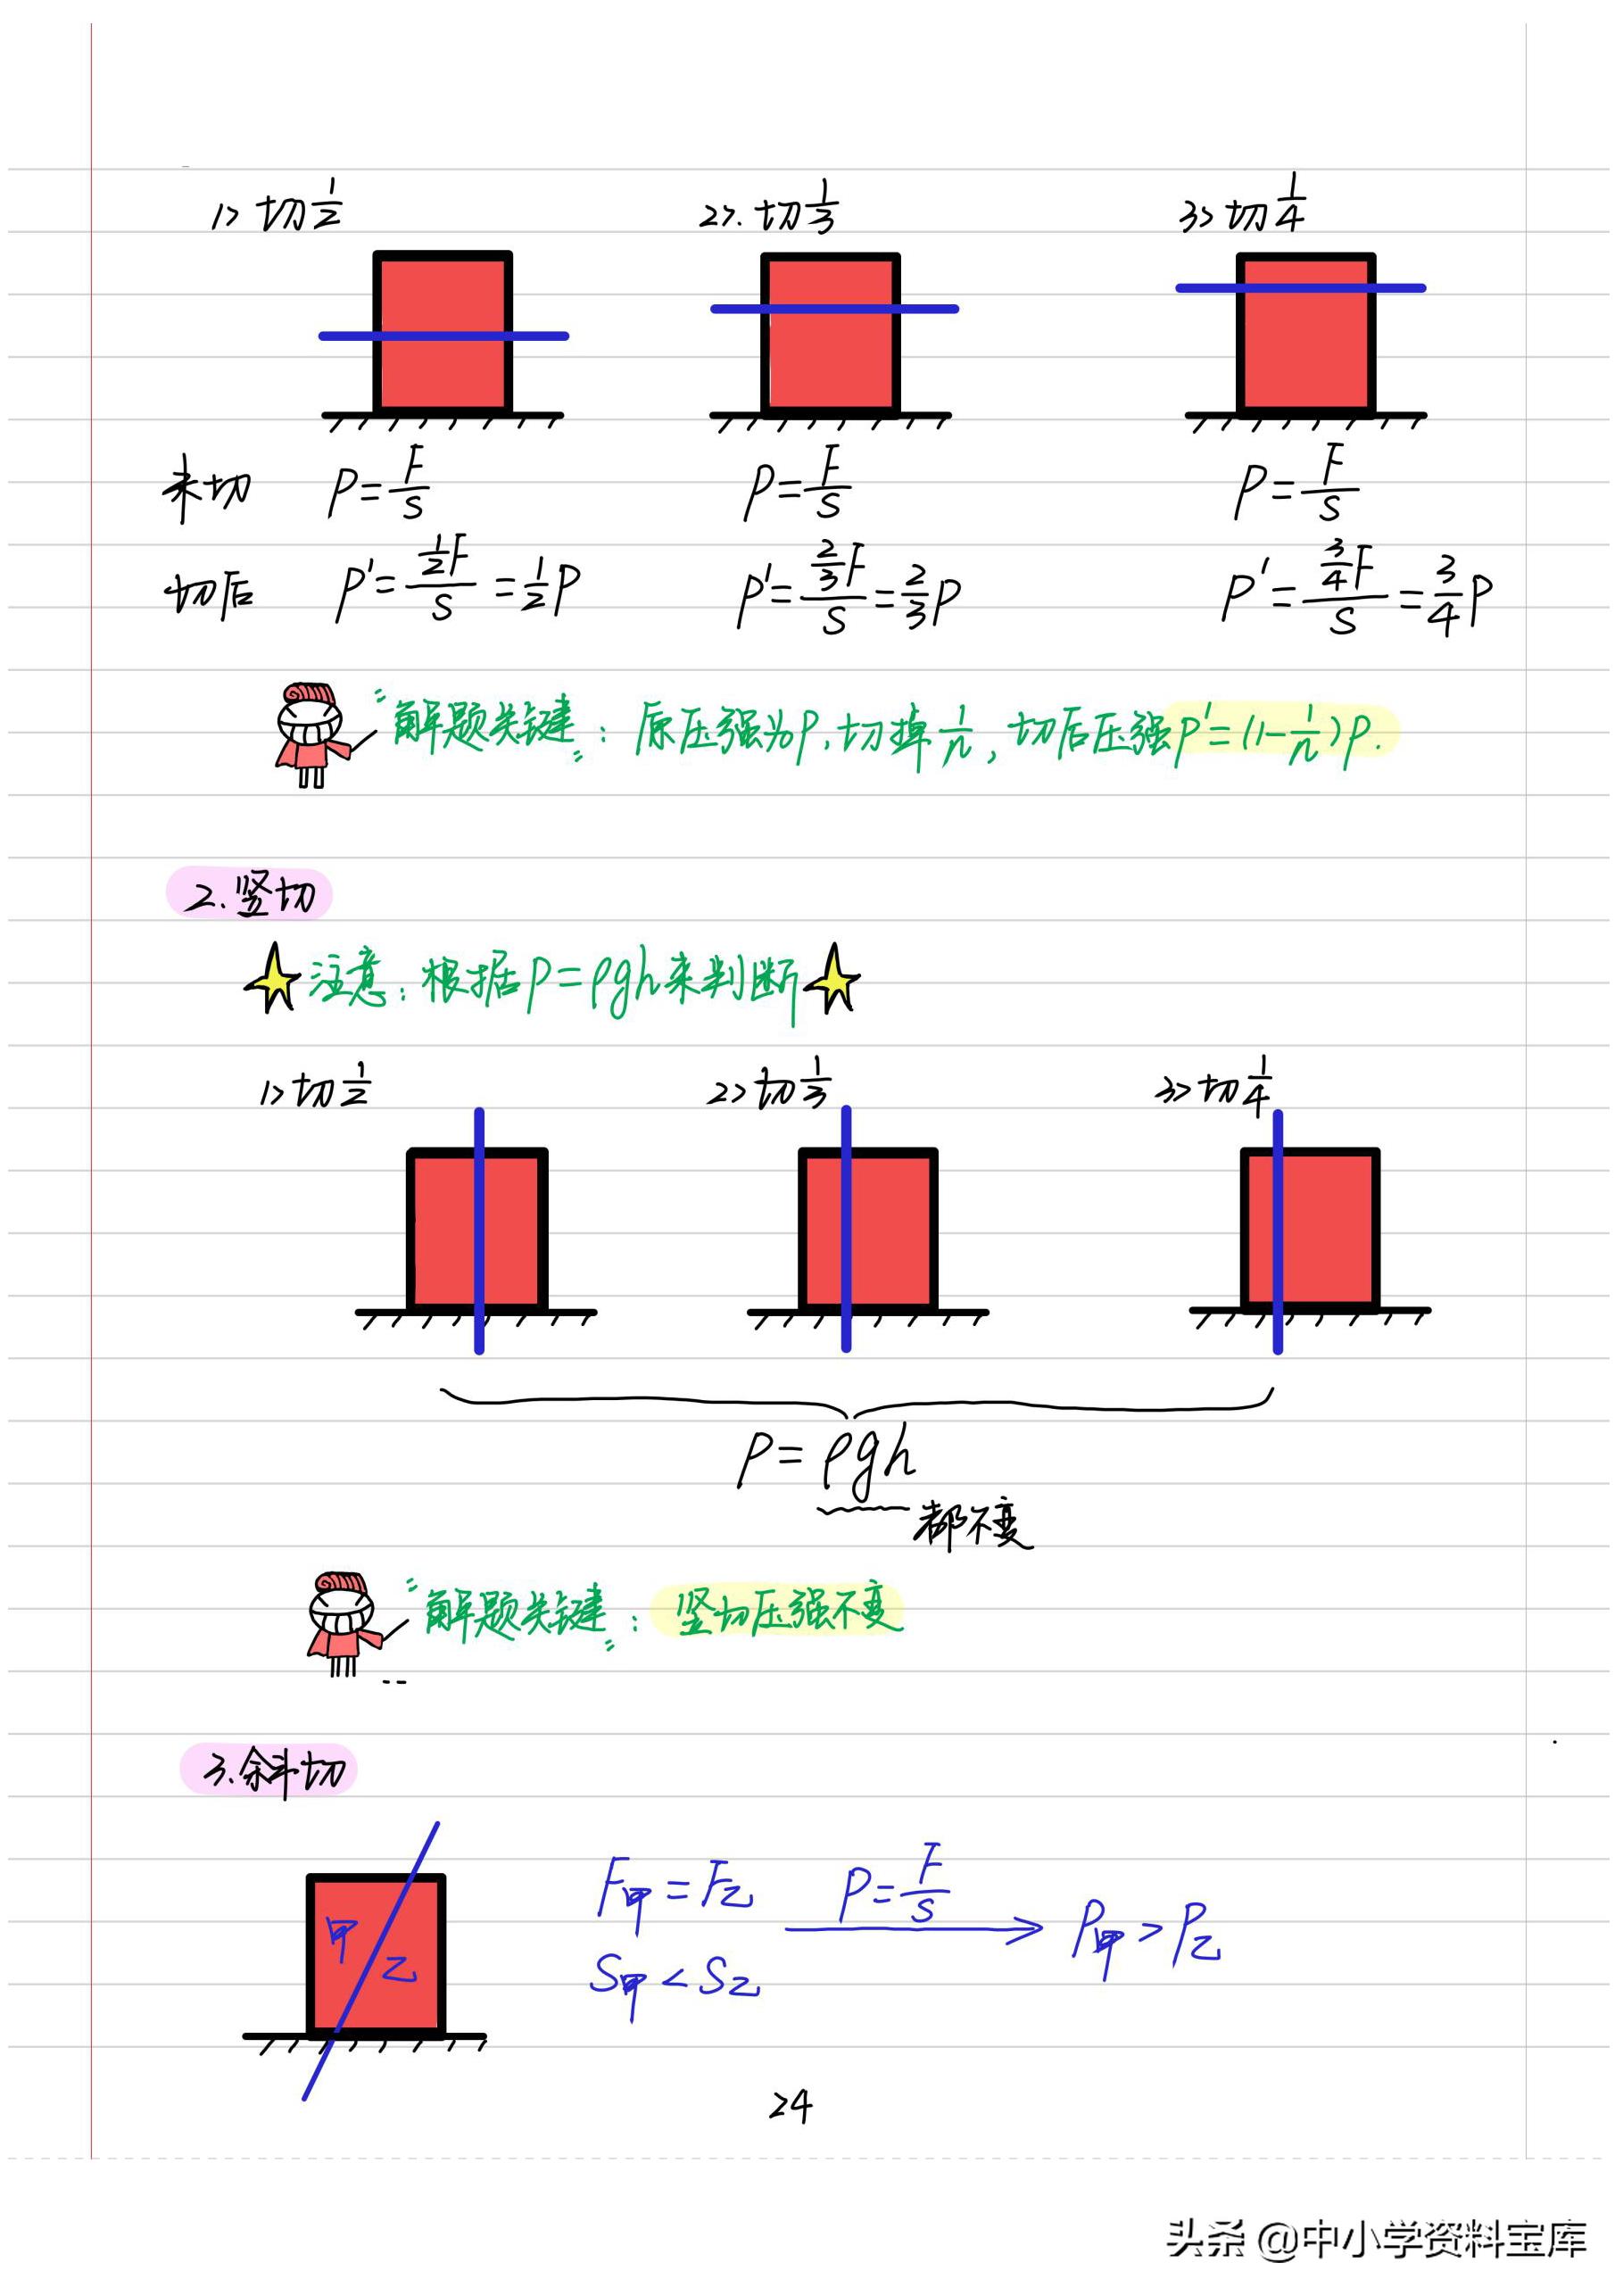 1> 切1/2 2>. 切1/3 3> 切1/4
未切 P=F/S P=F/S P=F/S
切后 P'=(1/2F)/S=1/2P P'=(2/3F)/S=2/3P P'=(3/4F)/S=3/4P
"解题关键": 原压强为P,切掉1/n,切后压强P'=(1-1/n)P.
2.竖切
注意:根据P=ρgh来判断
1>切1/2 2>切1/3 3>切1/4
P=ρgh
都不变
"解题关键": 竖切压强不变
3.斜切
甲 乙
F甲=F乙 P=F/S P甲>P乙
S甲<S乙
24
头条 @中小学资料宝库